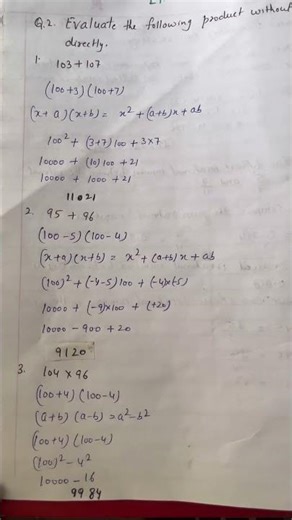 Q.2. Evaluate the following product without
directly.
1. 103 + 107
(100+3) (100+7)
(x+a) (x+b) = x² + (a+b)x + ab
100² + (3+7)100 + 3×7
10000 + (10)100 + 21
10000 + 1000 + 21
11021
2. 95 + 96
(100-5) (100-4)
(x+a) (x+b) = x² + (a+b)x + ab
(100)² + (-4-5)100 + (-4)(-5)
10000 + (-9)×100 + (+20)
10000 - 900 + 20
9120
3. 104 × 96
(100+4) (100-4)
(a+b) (a-b) = a²-b²
(100+4) (100-4)
(100)² - 4²
10000 - 16
9984